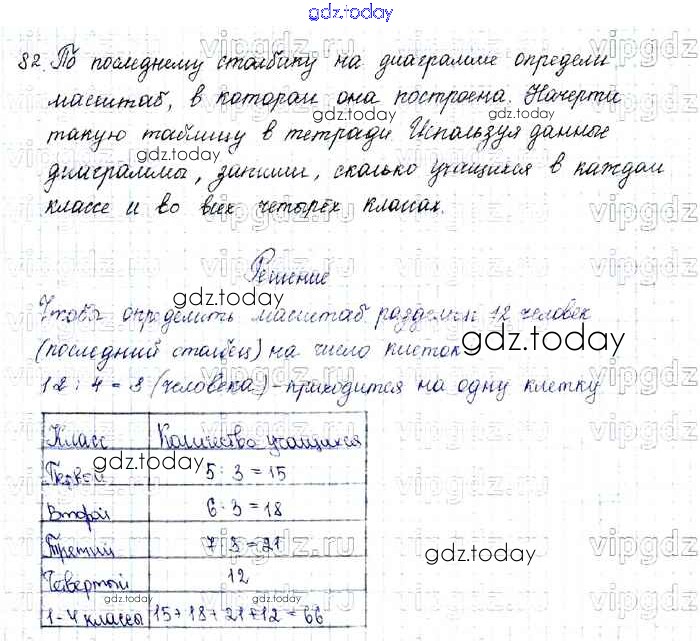 gdz.today
82. По последнему столбику на диаграмме определи
масштаб, в котором она построена. Начерти
такую таблицу в тетради. Используя данные
gdz.today gdz.today
диаграммы, запиши, сколько учащихся в каждом
классе и во всех четырёх классах.
Решение
gdz.today
Чтобы определить масштаб разделим 12 человек
gdz.today
(последний столбец) на число клеток
12 : 4 = 3 (человека) - приходится на одну клетку
Класс Количество учащихся
gdz.today
Первый 5 · 3 = 15
Второй 6 · 3 = 18
Третий 7 · 3 = 21
gdz.today
Четвертый 12
1-4 классы 15+18+21+12=66
gdz.today
vipgdz.ru